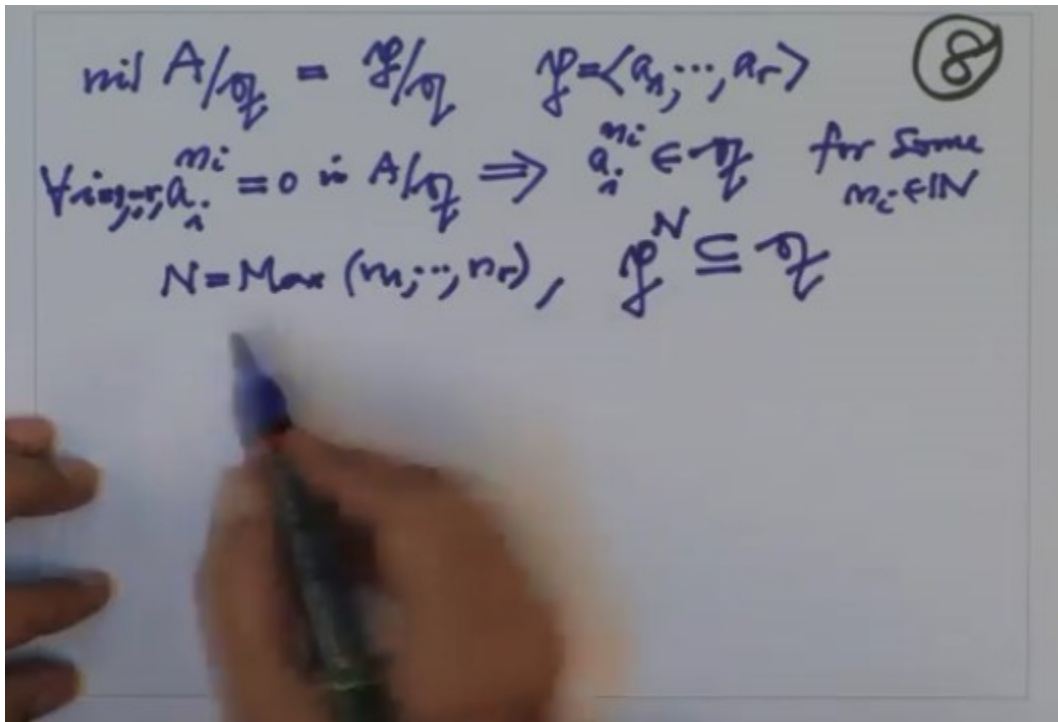 nil A/𝔮 = 𝔭/𝔮 𝔭=⟨a₁,⋯,aᵣ⟩ ⑧
∀i=1,⋯,r, aᵢ^{nᵢ} = 0 in A/𝔮 ⟹ aᵢ^{nᵢ} ∈ 𝔮 for some
nᵢ∈ℕ
N=Max (n₁,⋯,nᵣ), 𝔭^N ⊆ 𝔮